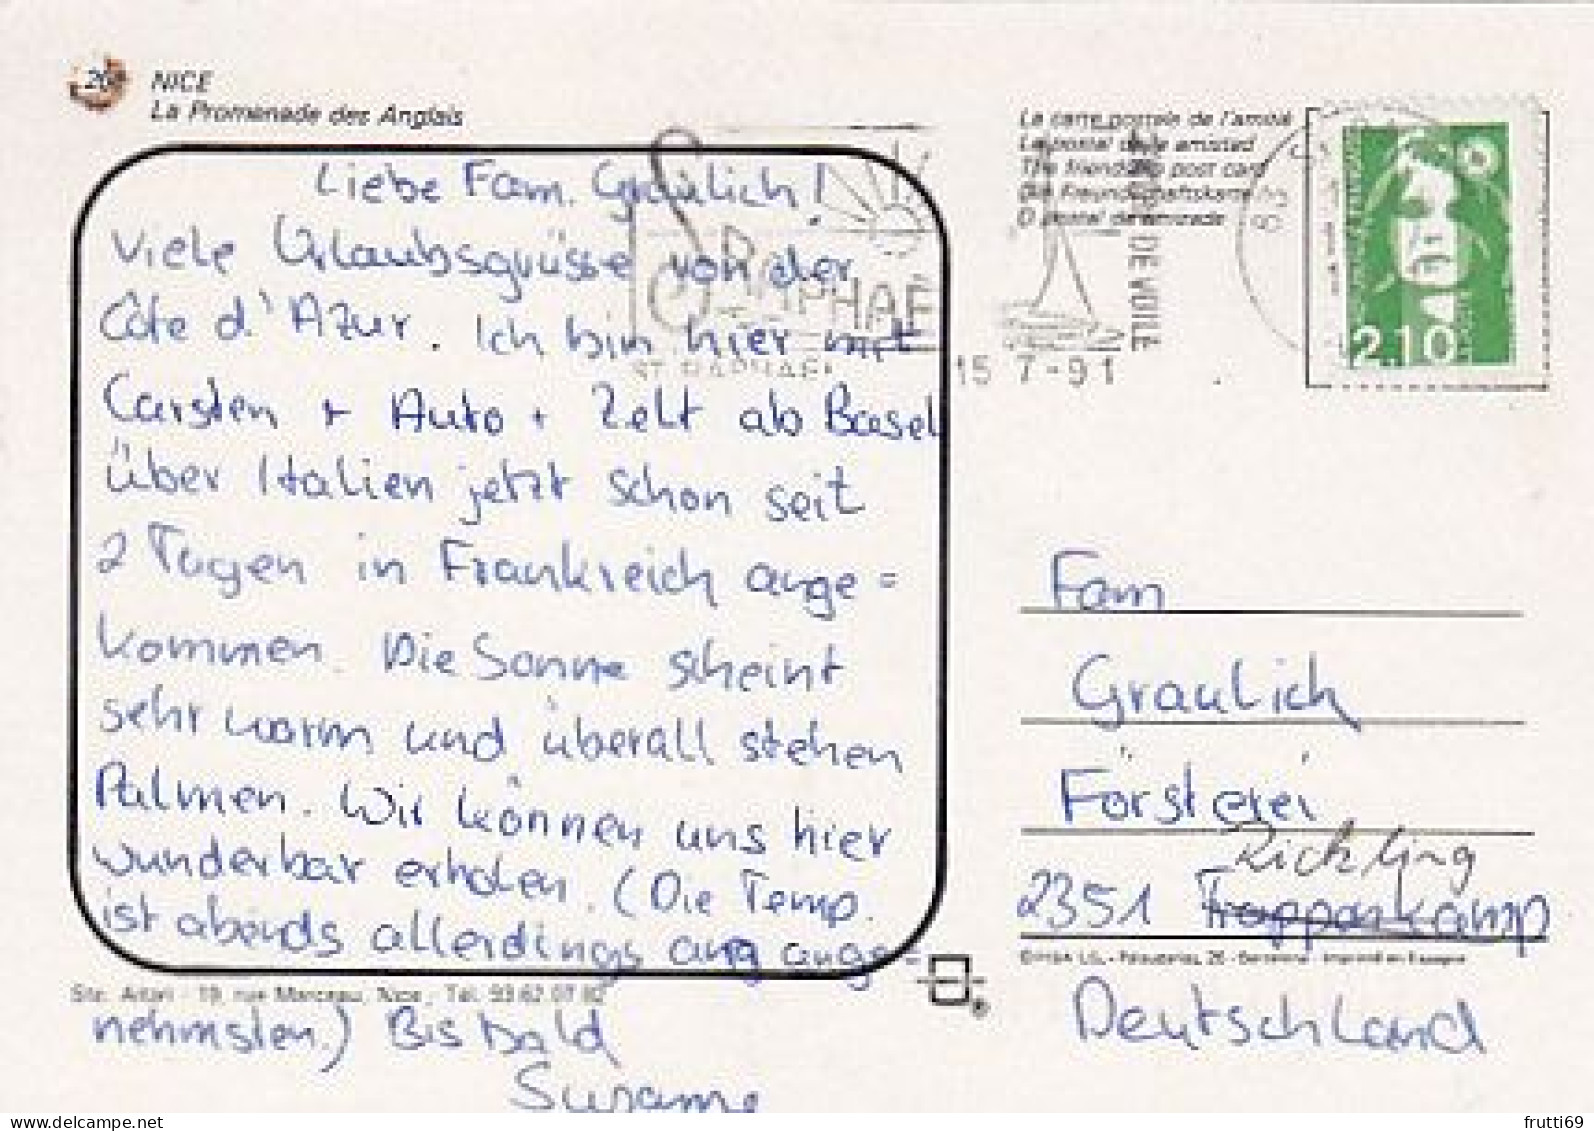 26
NICE
La Promenade des Anglais
La carte postale de l'amitié
La postal de la amistad
The friendship post card
Die Freundschaftskarte
O postal de amizade
ST RAPHAEL
DE VOILE
15 7-91
2,10
Liebe Fam. Graulich!
Viele Urlaubsgrüsse von der
Côte d'Azur. Ich bin hier mit
Carsten + Auto + Zelt ab Basel
über Italien jetzt schon seit
2 Tagen in Frankreich ange=
kommen. Die Sonne scheint
sehr warm und überall stehen
Palmen. Wir können uns hier
wunderbar erholen. (Die Temp.
ist abends allerdings ang ange=
nehmsten.) Bis bald
Susanne
Fam
Graulich
Försterei
Rickling
2351 Trappenkamp
Deutschland
Ste. Altari - 19, rue Marceau, Nice, Tél. 93 62 07 82
26 - Barcelona - Imprimé en Espagne
frutti69